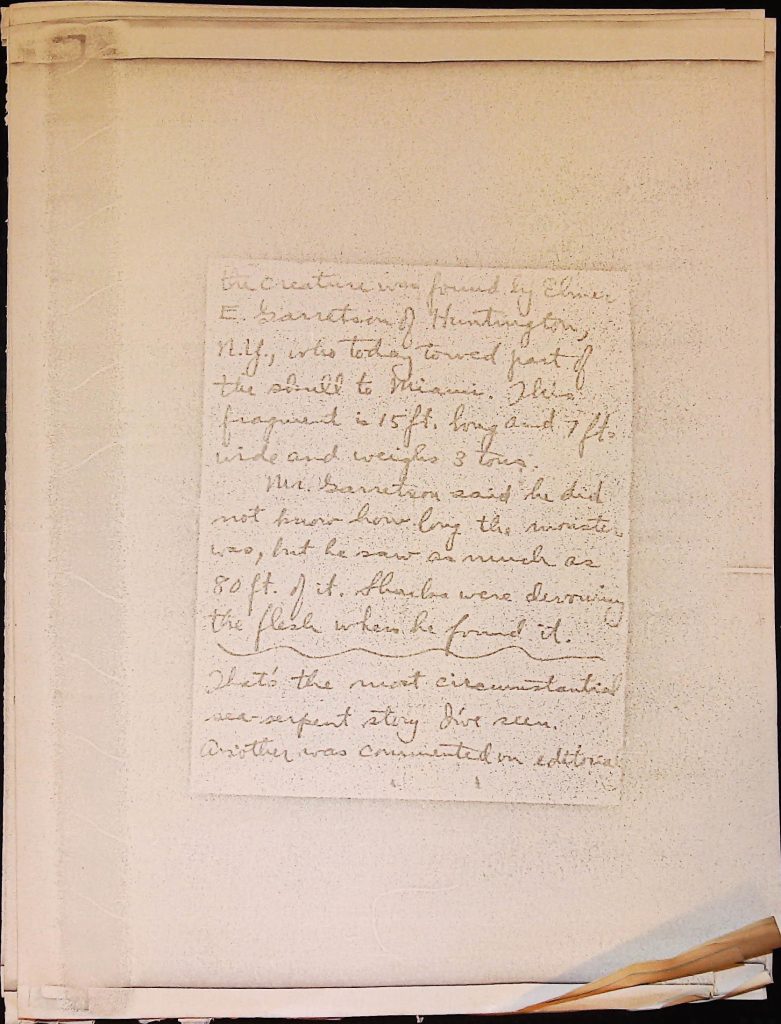 the creature was found by Elmer
E. Garretson of Huntington,
N.Y., who today towed part of
the skull to Miami. This
fragment is 15 ft. long and 7 ft.
wide and weighs 3 tons.
Mr. Garretson said he did
not know how long the monster
was, but he saw as much as
80 ft. of it. Sharks were devouring
the flesh when he found it.
That's the most circumstantial
sea-serpent story I've seen.
Another was commented on editorial